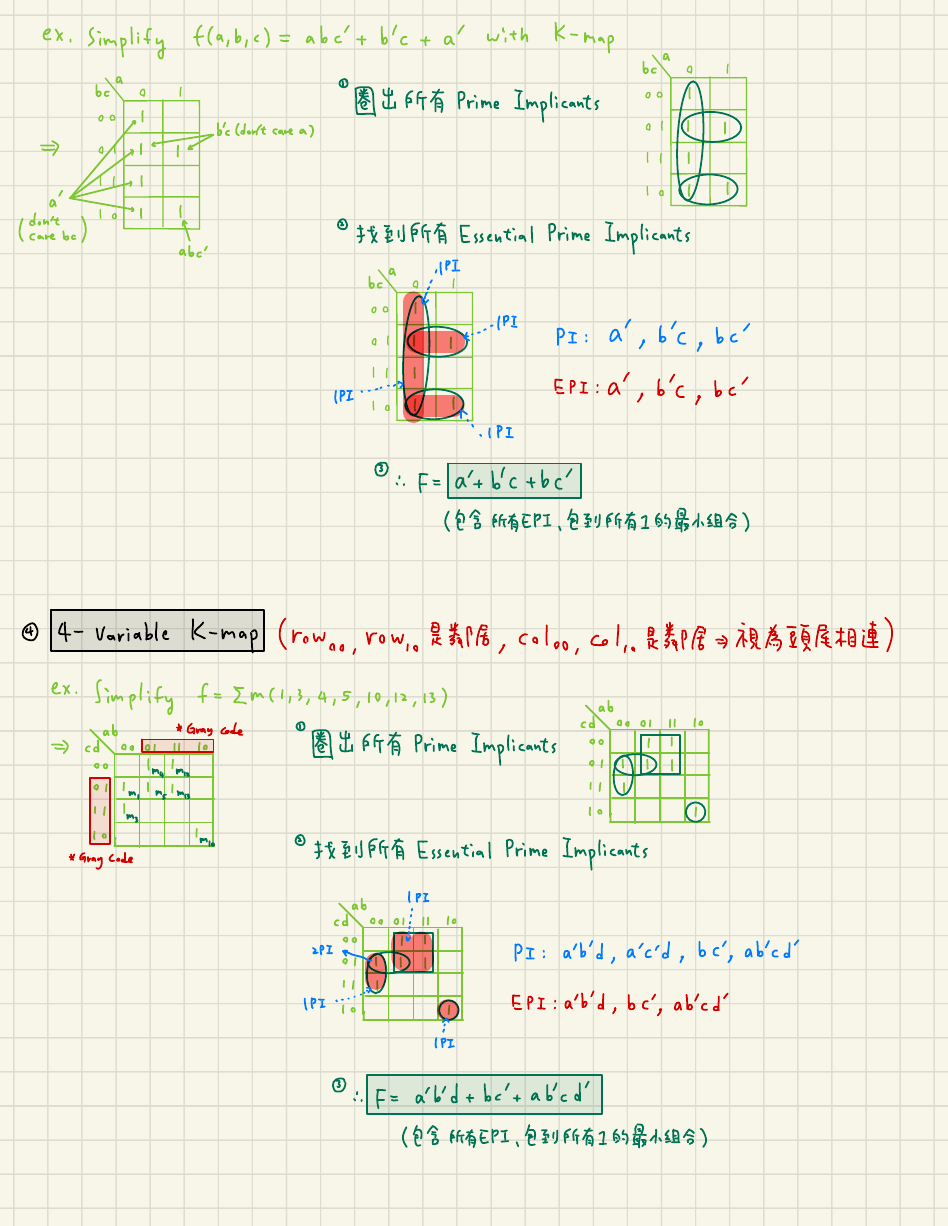 ex. Simplify f(a,b,c) = abc′ + b′c + a′ with K-map
⇒
a
bc 0 1
00 1
01 1 1
11 1
10 1 1
b′c (don't care a)
a′
(don't care bc)
abc′
① 圈出所有 Prime Implicants
a
bc 0 1
00 1
01 1 1
11 1
10 1 1
② 找到所有 Essential Prime Implicants
a
bc 0 1
00 1
01 1 1
11 1
10 1 1
1PI
1PI
1PI
1PI
PI: a′, b′c, bc′
EPI: a′, b′c, bc′
③ ∴ F = a′+ b′c + bc′
(包含所有EPI、包到所有1的最小組合)
④ 4-Variable K-map (row₀₀, row₁₀ 是鄰居, col₀₀, col₁₀ 是鄰居 ⇒ 視為頭尾相連)
ex. Simplify f = Σm(1,3,4,5,10,12,13)
⇒
* Gray Code
ab
cd 00 01 11 10
00 1m₄ 1m₁₂
01 1m₁ 1m₅ 1m₁₃
11 1m₃
10 1m₁₀
* Gray Code
① 圈出所有 Prime Implicants
ab
cd 00 01 11 10
00 1 1
01 1 1 1
11 1
10 1
② 找到所有 Essential Prime Implicants
1PI
ab
cd 00 01 11 10
00 1 1
01 1 1 1
11 1
10 1
2PI
1PI
1PI
PI: a′b′d, a′c′d, bc′, ab′cd′
EPI: a′b′d, bc′, ab′cd′
③ ∴ F = a′b′d + bc′ + ab′cd′
(包含所有EPI、包到所有1的最小組合)